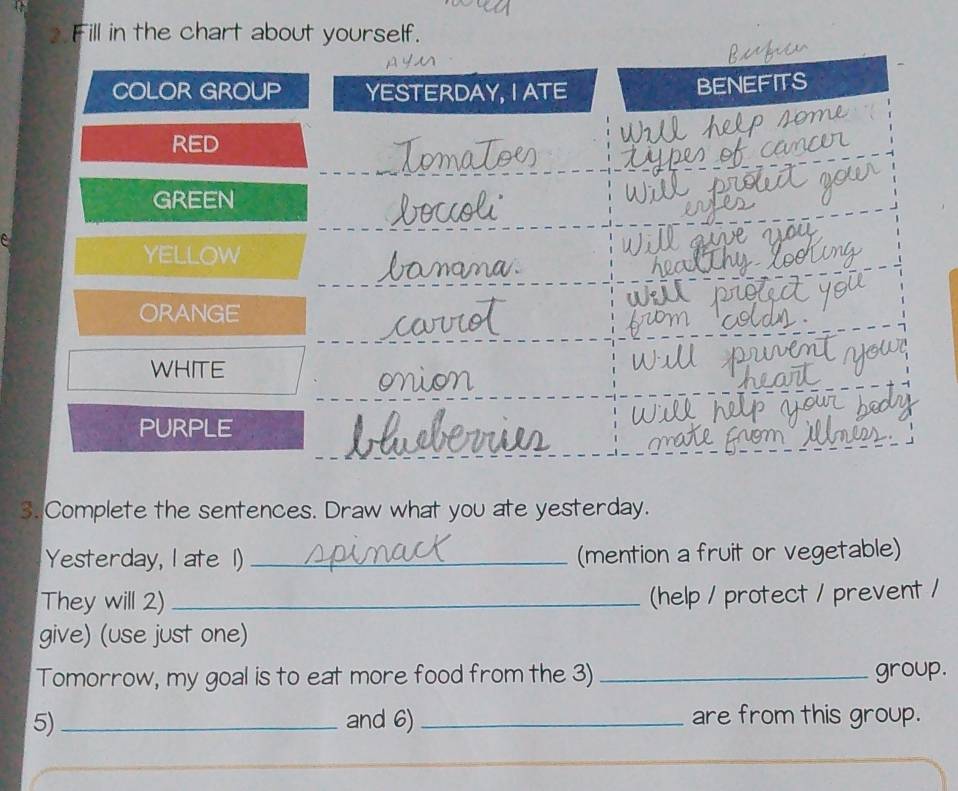 2. Fill in the chart about yourself.
Ayer
COLOR GROUP YESTERDAY, I ATE BENEFITS
RED Tomatoes Will help some
types of cancer
GREEN boccoli Will protect your
eyes
YELLOW banana. Will give you
healthy-looking
ORANGE carrot will protect you
from colds.
WHITE onion Will prevent your
heart
PURPLE blueberries will help your body
mate from illness.
3. Complete the sentences. Draw what you ate yesterday.
Yesterday, I ate 1) spinack (mention a fruit or vegetable)
They will 2) (help / protect / prevent /
give) (use just one)
Tomorrow, my goal is to eat more food from the 3) group.
5) and 6) are from this group.